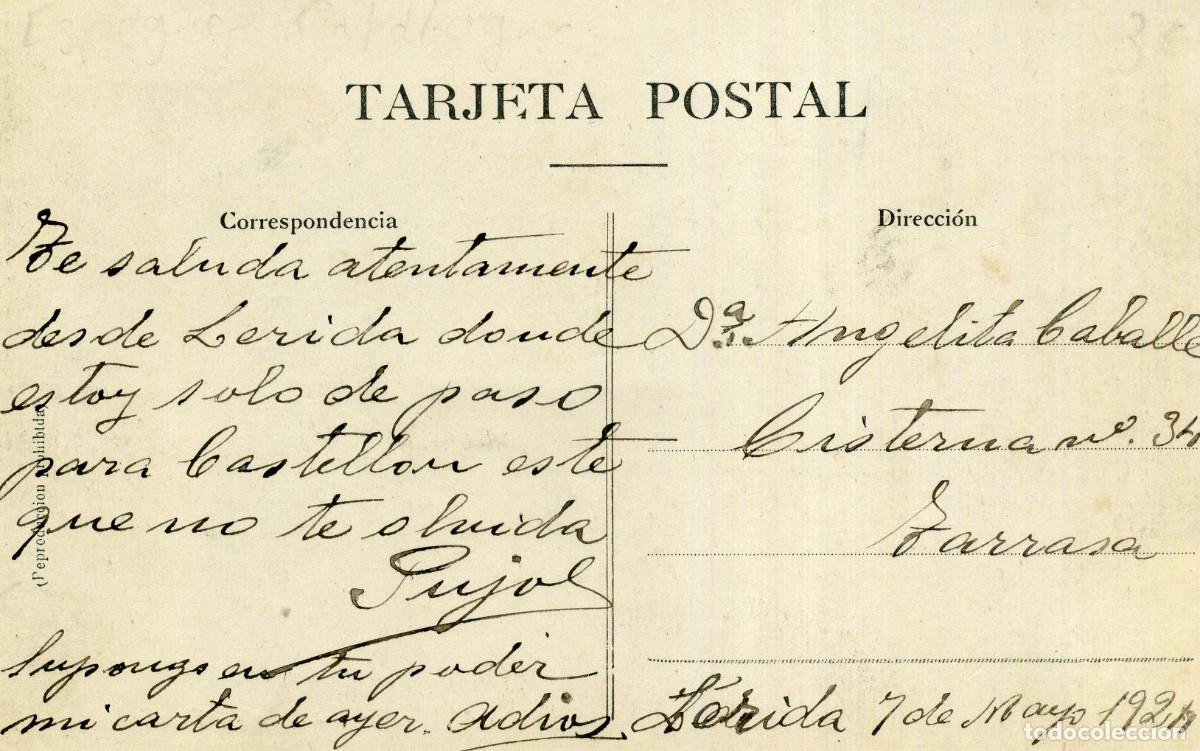 TARJETA POSTAL
Correspondencia
Te saluda atentamente
desde Lerida donde
estoy solo de paso
para Castellon este
que no te olvida
Pujol
supongo en tu poder
mi carta de ayer. Adios.
(Reproduccion prohibida)
Dirección
D.ª Angelita Caballe
Cisterna nº. 34
Tarrasa
Lérida 7 de Mayo
todocoleccion